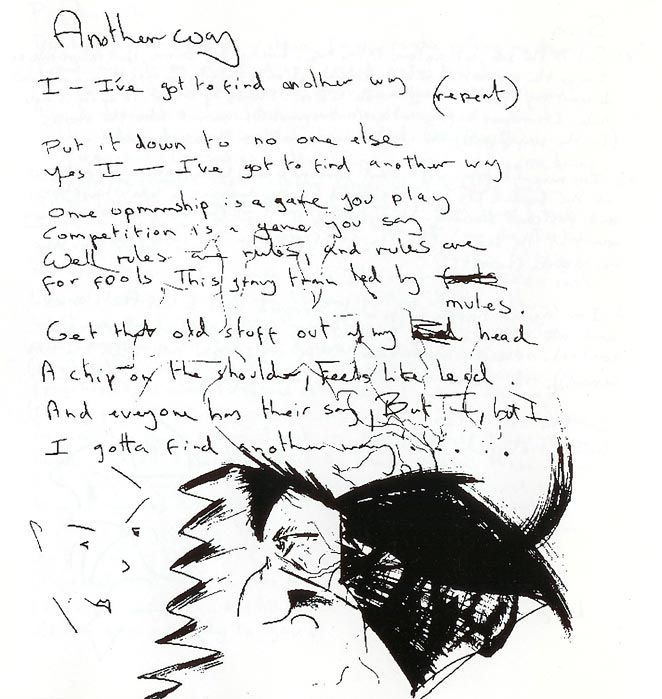 Another way
I - I've got to find another way (repeat)
Put it down to no one else
Yes I — I've got to find another way
One upmanship is a game you play
Competition is a game you say
Well rules are rules, and rules are
for fools, This gravy train led by
mules.
Get that old stuff out of my head
A chip on the shoulder, Feels like lead.
And everyone has their say, But I, but I
I gotta find another way......